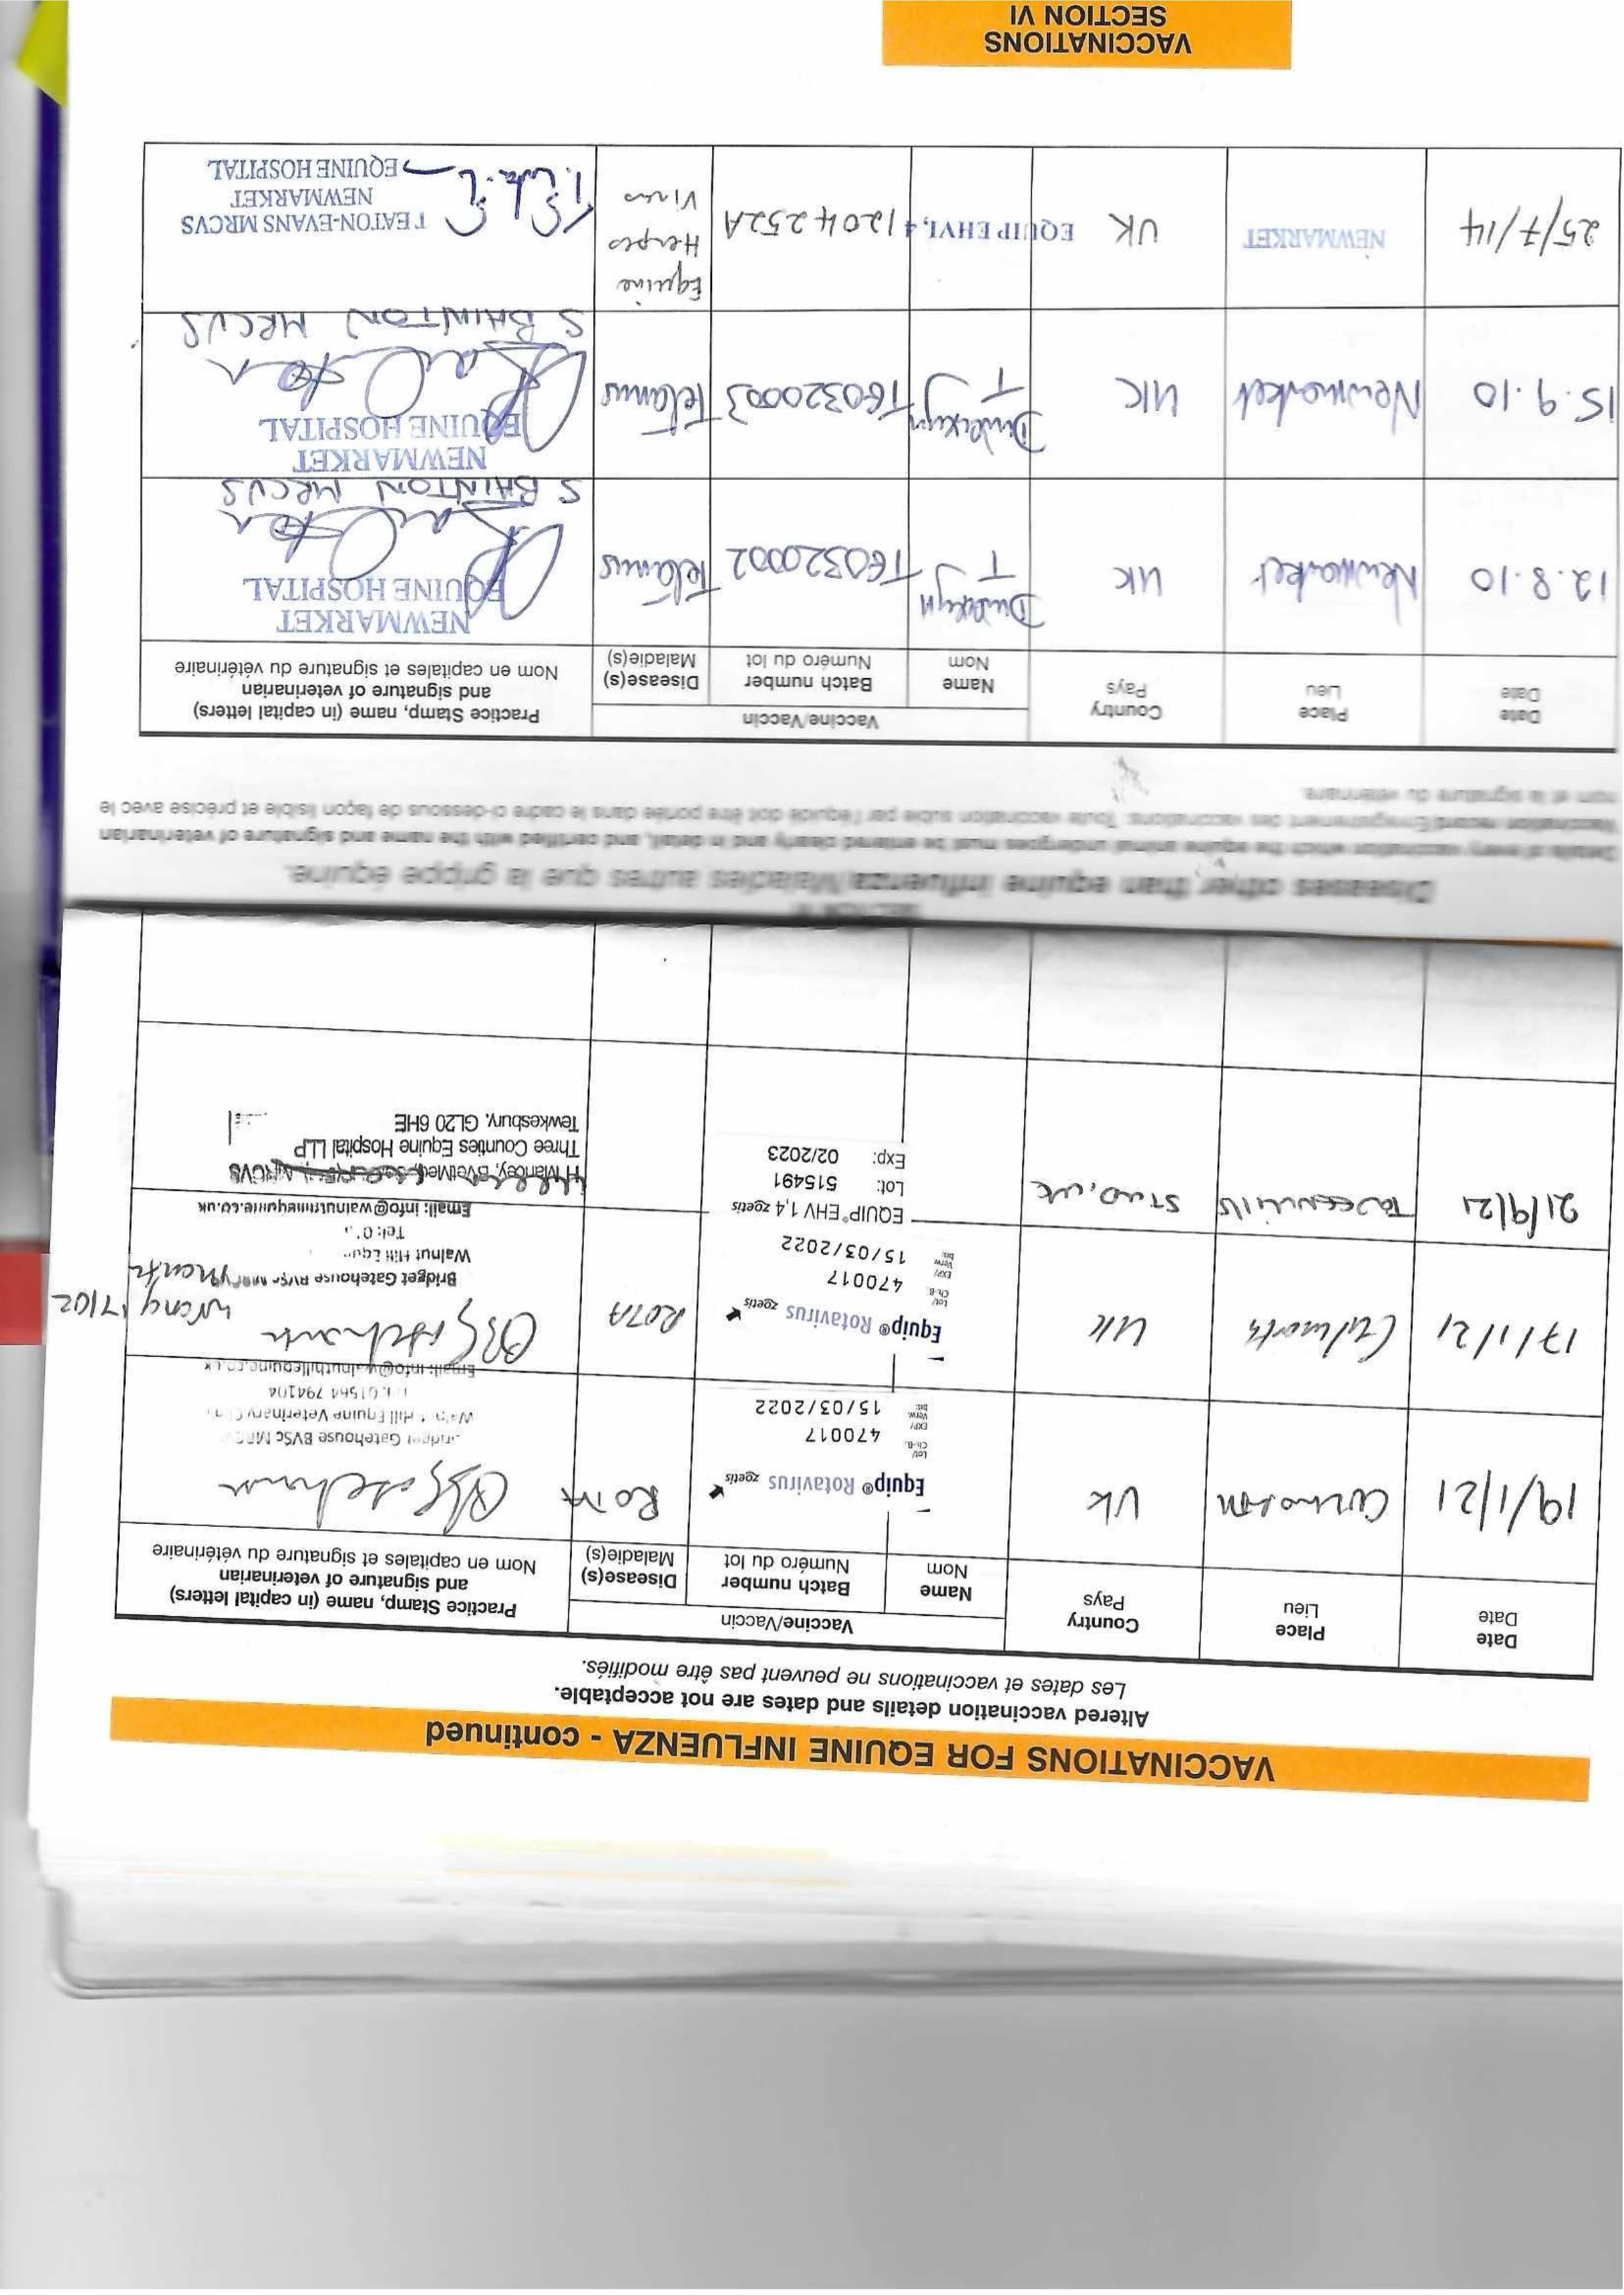 VACCINATIONS FOR EQUINE INFLUENZA - continued
Altered vaccination details and dates are not acceptable.
Les dates et vaccinations ne peuvent pas être modifiés.
Date
Date
Place
Lieu
Country
Pays
Vaccine/Vaccin
Name
Nom
Batch number
Numéro du lot
Disease(s)
Maladie(s)
Practice Stamp, name (in capital letters)
and signature of veterinarian
Nom en capitales et signature du vétérinaire
19/1/21
UK
Equip® Rotavirus zoetis
Lot/
Ch.-B.
470017
EXP/
Verw.
bis:
15/03/2022
ROTA
Gatehouse BVSc
Hill Equine Veterinary
01564 794104
17/1/21
UK
Equip® Rotavirus zoetis
Lot/
Ch.-B.
470017
EXP/
Verw.
bis:
15/03/2022
ROTA
wrong month 17/02
Bridget Gatehouse
Walnut Hill
Tel: 0
21/9/21
STUD, UK
EQUIP® EHV 1,4 zoetis
Lot: 515491
Exp: 02/2023
Three Counties Equine Hospital LLP
Tewkesbury, GL20 6HE
Diseases other than equine influenza/Maladies autres que la grippe équine.
Details of every vaccination which the equine animal undergoes must be entered clearly and in detail, and certified with the name and signature of veterinarian
Vaccination record/Enregistrement des vaccinations: Toute vaccination subie par l'équidé doit être portée dans le cadre ci-dessous de façon lisible et précise avec le
nom et la signature du vétérinaire.
Date
Date
Place
Lieu
Country
Pays
Vaccine/Vaccin
Name
Nom
Batch number
Numéro du lot
Disease(s)
Maladie(s)
Practice Stamp, name (in capital letters)
and signature of veterinarian
Nom en capitales et signature du vétérinaire
12.8.10
Newmarket
UK
T
T60320002
Tetanus
NEWMARKET
EQUINE HOSPITAL
S BAINTON MRCVS
15.9.10
Newmarket
UK
T
T60320003
Tetanus
NEWMARKET
EQUINE HOSPITAL
S BAINTON MRCVS
25/7/14
NEWMARKET
UK
EQUIP EHV1,4
1204252A
Equine
Herpes
Virus
T EATON-EVANS MRCVS
NEWMARKET
EQUINE HOSPITAL
VACCINATIONS
SECTION VI